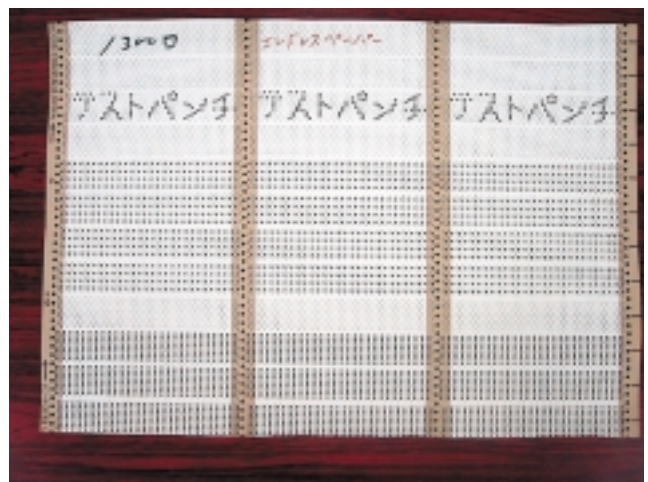 13000 エンドレスペーパー
テストパンチ テストパンチ テストパンチ